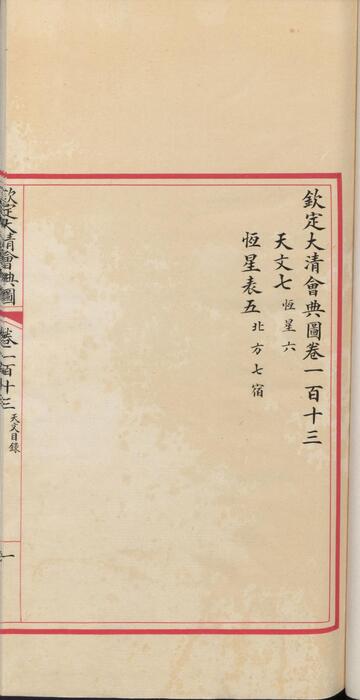 欽定大清會典圖卷一百十三
天文七 恆星六
恆星表五 北方七宿
欽定大清會典圖
卷一百十三
天文目錄
一